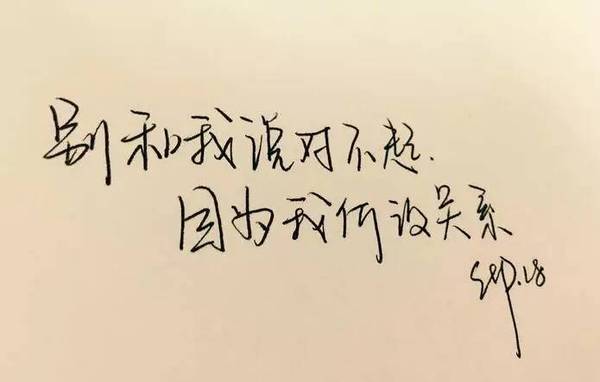 别和我说对不起.
因为我们没关系
Sep.18